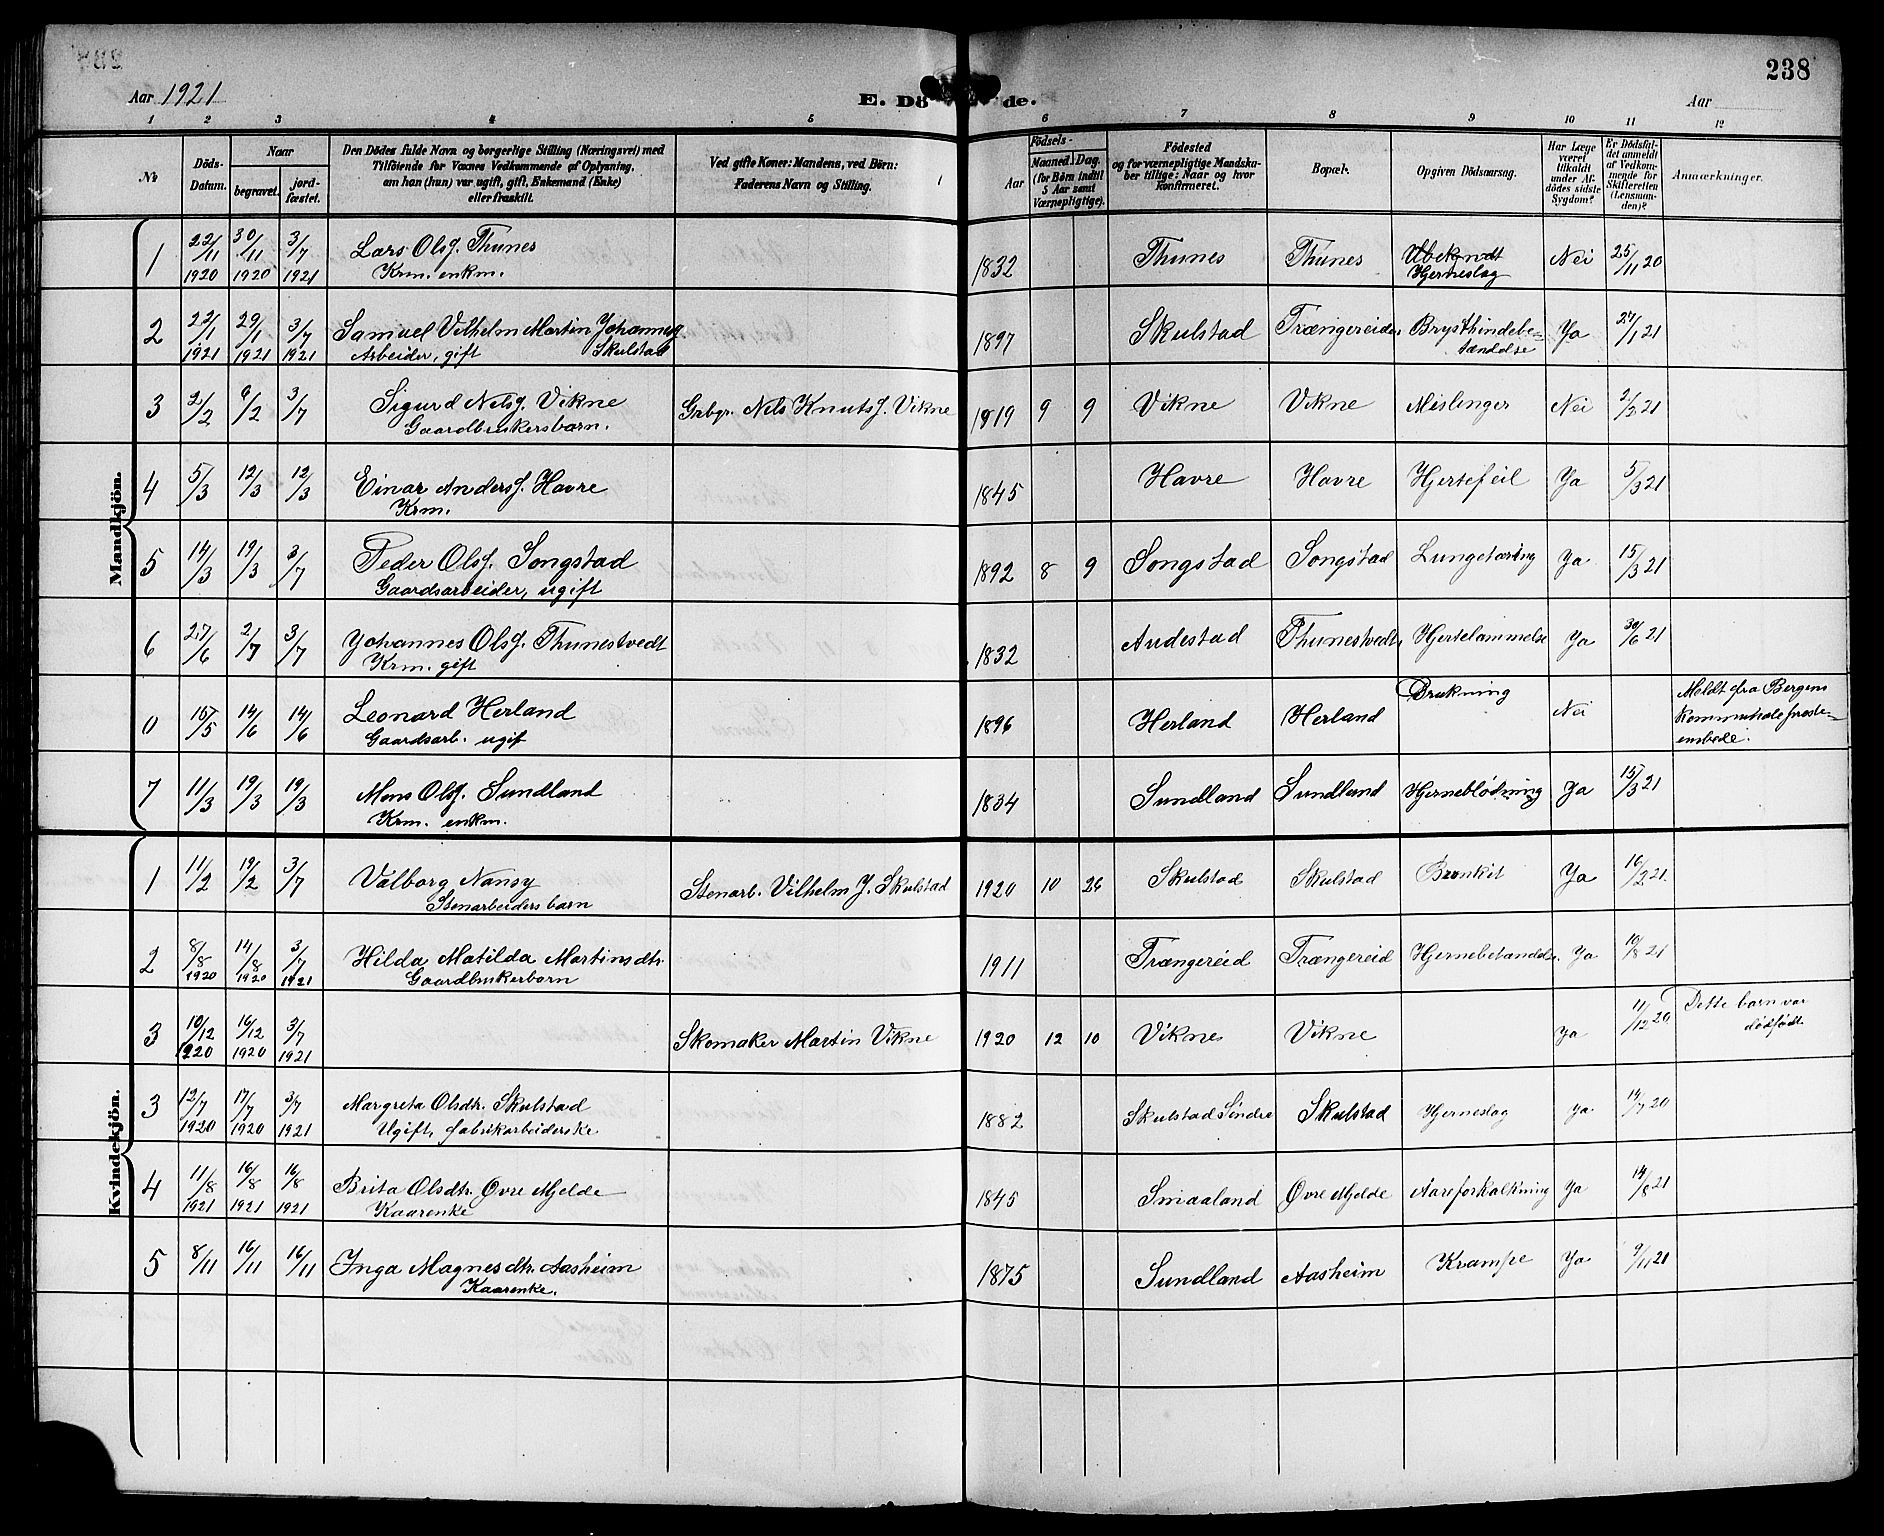 Aar 1921
E. Dö de.
238
Aar
1 2 3 4 5 6 7 8 9 10 11 12
No
Döds-Datum.
Naar
begravet.
jord-fæstet.
Den Dödes fulde Navn og borgerlige Stilling (Næringsvei) med
Tilföiende for Voxnes Vedkommende af Oplysning,
om han (hun) var ugift, gift, Enkemand (Enke)
eller fraskilt.
Ved gifte Koner: Mandens, ved Börn:
Faderens Navn og Stilling.
Aar
Födsels-
Maaned. Dag.
(for Börn indtil
5 Aar samt
Værnepligtige).
Födested
og for værnepligtige Mandska-
ber tillige: Naar og hvor
konfirmeret.
Bopæl.
Opgiven Dödsaarsag.
Har Læge
været
tilkaldt
under Af-
dödes sidste
Sygdom?
Er Dödsfal-
det anmeldt
af Vedkom-
mende for
Skifteretten
(Lensman-
den)?
Anmærkninger.
Mandkjön.
1 22/11 1920 30/11 1920 3/7 1921 Lars Olsf. Thunes 1832 Thunes Thunes Ubekendt Nei 25/11 20
Krm. enkm. Hjerneslag
2 22/1 1921 29/1 1921 3/7 1921 Samuel Vilhelm Martin Johannesf. 1897 Skulstad Trængereider Brysthindebe- Ja 24/1 21
Arbeider, gift Skulstad tændelse
3 2/2 6/2 3/7 Sigurd Nilsf. Vikne Grbgr. Nils Knutsf. Vikne 1819 9 9 Vikne Vikne Mislinger Nei 2/2 21
Gaardbrukersbarn.
4 5/3 12/3 12/3 Einar Andersf. Havre 1845 Havre Havre Hjertefeil Ja 5/3 21
Krm.
5 14/3 19/3 3/7 Peder Olsf. Songstad 1892 8 9 Songstad Songstad Lungetæring Ja 15/3 21
Gaardsarbeider, ugift
6 27/6 2/7 3/7 Johannes Olsf. Thunestvedt 1832 Audestad Thunestvedt Hjertelammelse Ja 30/6 21
Krm. gift
0 15/5 14/6 14/6 Leonard Herland 1896 Herland Herland Drukning Nei Meldt fra Bergens
Gaardsarb. ugif kommunale preste-
embede.
7 11/3 19/3 19/3 Mons Olsf. Sundland 1834 Sundland Sundland Hjerneblødning Ja 15/3 21
Krm. enkm.
Kvindekjön.
1 11/2 19/2 3/7 Valborg Nansy Stenarb. Vilhelm J. Skulstad 1920 10 26 Skulstad Skulstad Bronkit Ja 16/2 21
Stenarbeiders barn
2 8/8 1920 14/8 1920 3/7 1921 Hilda Matilda Martinsdtr. 1911 Trængereid Trængereid Hjernebetændelse Ja 10/8 21
Gaardbrukerbarn
3 10/12 1920 16/12 1920 3/7 1921 Skomaker Martin Vikne 1920 12 10 Vikne Vikne Ja 11/12 20 Dette barn var
dødfødt
3 12/7 1920 17/7 1920 3/7 1921 Margreta Olsdtr. Skulstad 1882 Skulstad Søndre Skulstad Hjerneslag Ja 14/7 20
Ugift, fabrikarbeiderske
4 11/8 1921 16/8 1921 16/8 1921 Brita Olsdtr. Øvre Mjelde 1845 Smaaland Øvre Mjelde Aareforkalkning Ja 14/8 21
Kaarenke
5 8/11 16/11 16/11 Inga Magnesdtr. Aasheim 1875 Sundland Aasheim Krampe Ja 9/11 21
Kaarenke.